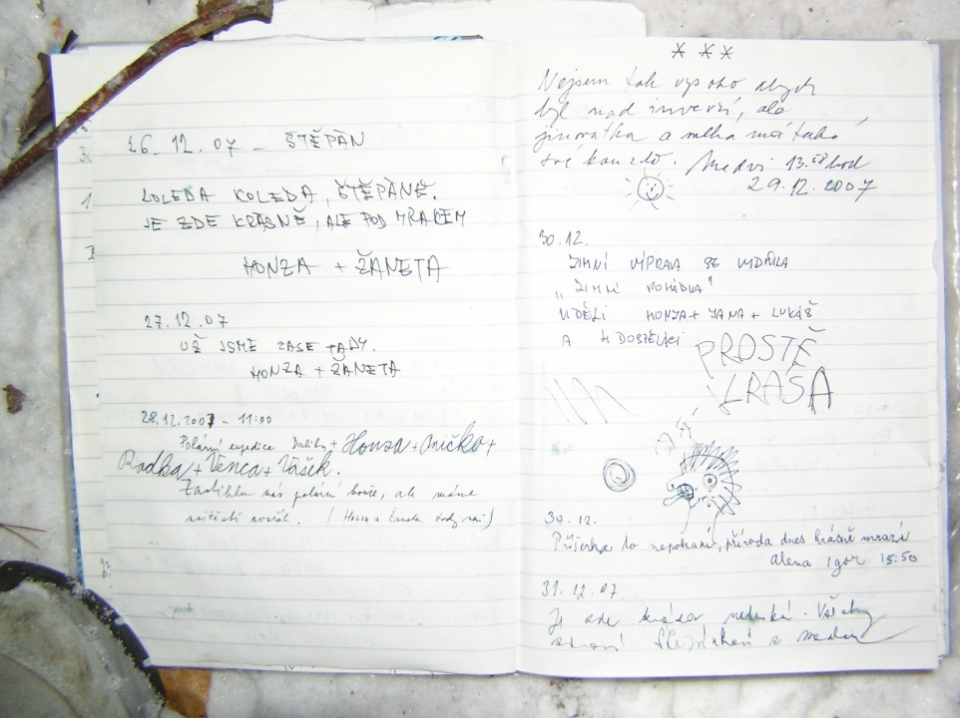 26.12.07 - ŠTĚPÁN
KOLEDA KOLEDA, ŠTĚPÁNĚ.
JE ZDE KRÁSNĚ, ALE POD MRAKEM
HONZA + ŽANETA
27.12.07
UŽ JSME ZASE TADY.
HONZA + ŽANETA
28.12.2007 - 11:00
Polární expedice + Honza + Anička +
Radka + Venca + Vašek.
Zastihla nás polární bouře, ale máme
(Honza a Žaneta tady není)
* * *
Nejsem tak vysoko abych
byl nad inverzí, ale
jinovatka a mlha má také
své kouzlo. 13.58 hod
29.12.2007
30.12.
ZIMNÍ VÍPRAVA SE VIDAŘILA
"ZIMNÍ POHÁDKA"
VIDĚLI HONZA + JANA + LUKÁŠ
A 4 DOSPĚLÁCI
PROSTĚ
KRÁSA
30.12.
to nepokazí, příroda dnes krásně mrazí
Alena Igor 15:50
31.12.07
Je zde krásně